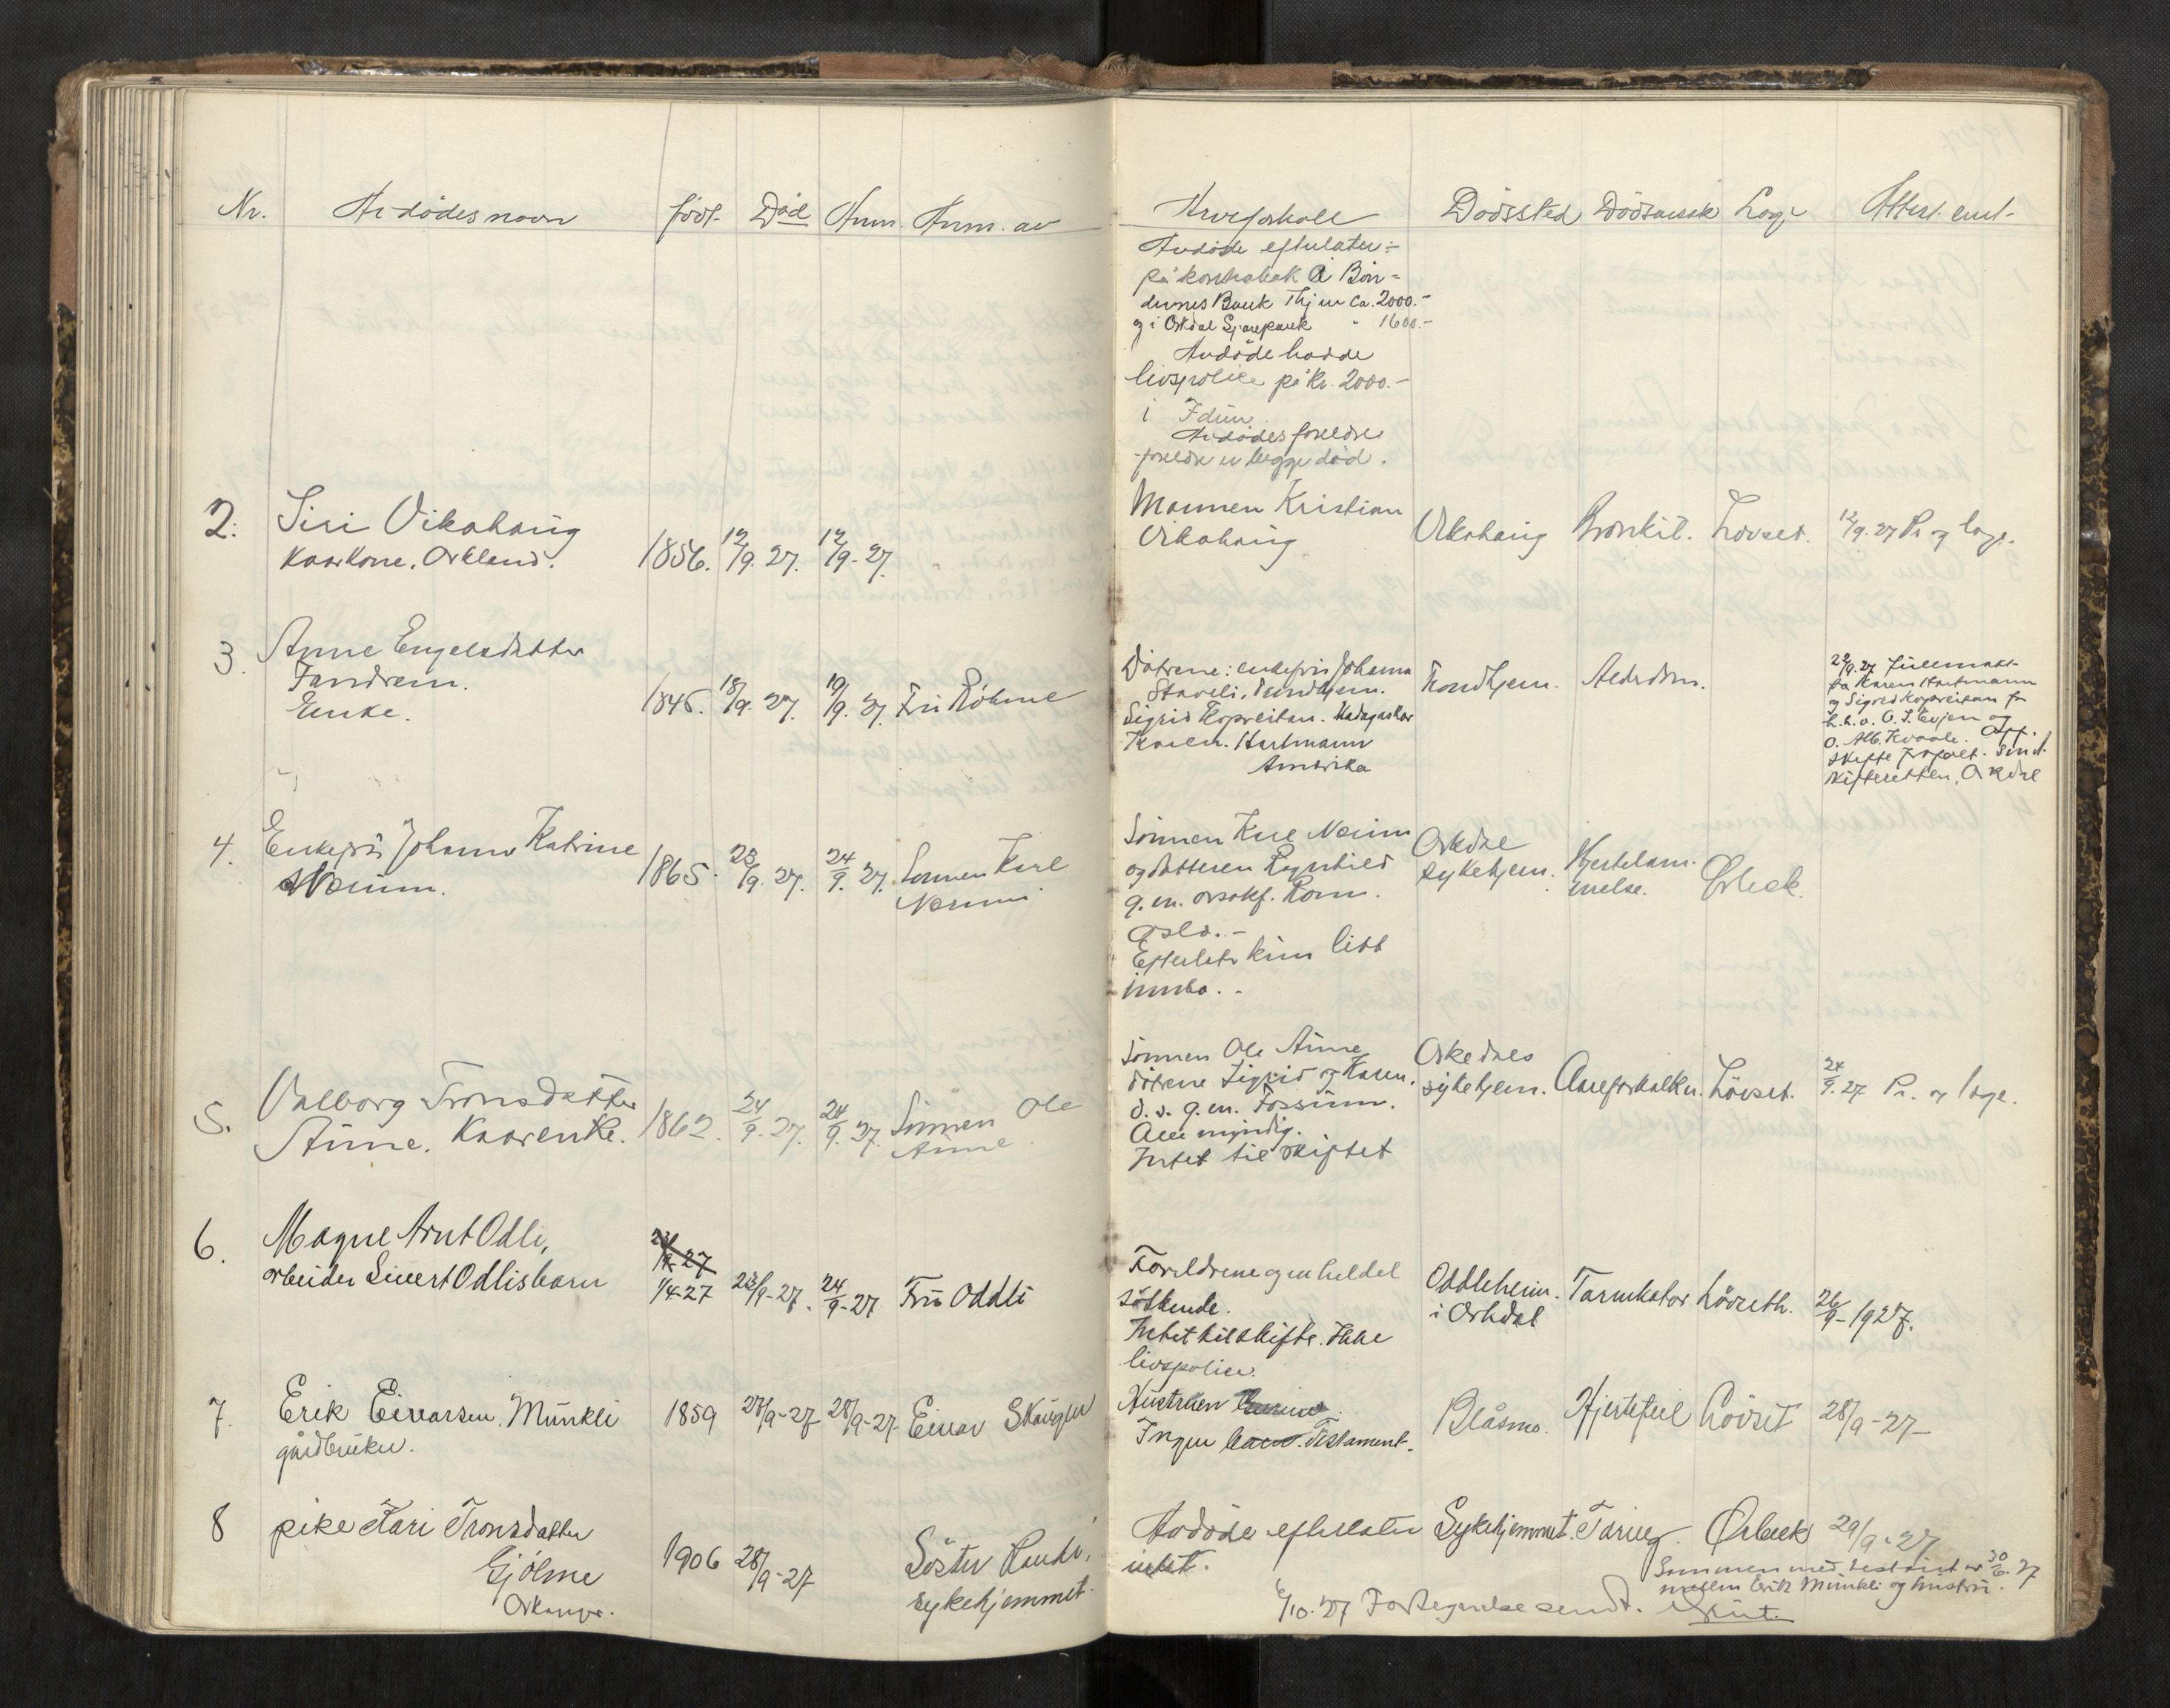 Nr. Avdødes navn født Død Anm. Anm. av
Arveforhold Dødssted Dødsårsak Læge Attest. ent.
Avdøde efterlater:
på kontrabok i Bøn-
dernes Bank Thjem ca. 2000.-
og i Orkdal Sparebank " 1600.-
Avdøde hadde
livspolice på kr. 2000.-
i Idun.
Avdødes foreldre
foreldre er begge død.
2. Siri Vikahaug
Kaarkone. Orkland. 1856. 12/9. 27. 12/9. 27.
Mannen Kristian
Vikahaug Vikahaug Bronkit. Løvset. 12/9. 27 Pr. og læge.
3. Anne Engelsdatter
Fandrem.
Enke. 1845. 18/9. 27. 19/9. 27. Fru Bøhme
Døtrene: enkefru Johanna
Staveli, Trondhjem.
Sigrid Kopreitan. Madagaskar
Karen Hartmann
Amerika
Trondhjem. Alderdom.
22/9. 27 fullmakt
fra Karen Hartmann
og Sigrid Kopreitan for
h.h.v. O. J. Evjen og
O. Alb. Kvaale.
skifte
skifteretten, Orkdal
4. Enkefru Johanna Katrine
Nerum. 1865. 23/9. 27. 24/9. 27. Sønnen Karl
Nerum.
Sønnen Karl Nerum
og datteren Ragnhild
g. m.
Oslo.-
Efterlater kun litt
innbo.-
Orkdal
sykehjem. Hjertelam-
melse. Ørbek.
5. Valborg Tronsdatter
Aune. Kaarenke. 1862. 24/9. 27. 24/9. 27. Sønnen Ole
Aune.
Sønnen Ole Aune
døtrene Sigrid og Karen.
d. s. g. m. Fossum.
Alle myndig.
Intet til skiftet
Orkedals
sykehjem. Aareforkalkn. Løvset. 24/9. 27 Pr. og læge.
6. Magne Arnt Odli,
arbeider Sivert Odlis barn
23/9-27
1/4-27 23/9-27. 24/9-27 Fru Oddli
Foreldrene og en heldel
søskende.
Intet til skifte. Ikke
livspolice.
Oddleheim.
i Orkdal Tarmkatar Løvseth. 26/9-1927.
7. Erik Eivarsen Munkli
gårdbruker. 1859 27/9-27 28/9-27. Einar Skaugen
Hustruen
Ingen barn. Testament.
Blåsmo. Hjertefeil Løvset 28/9-27
8 pike Kari Tronsdatter
Gjølme
Orkanger. 1906 28/9-27 Søster Randi,
sykehjemmet.
Avdøde efterlater
intet. Sykehjemmet. Ørbek 29/9-27
Sammen med testament av 30/6. 27
mellem Erik Munkli og hustru.
6/10. 27 Fortegnelse sendt.